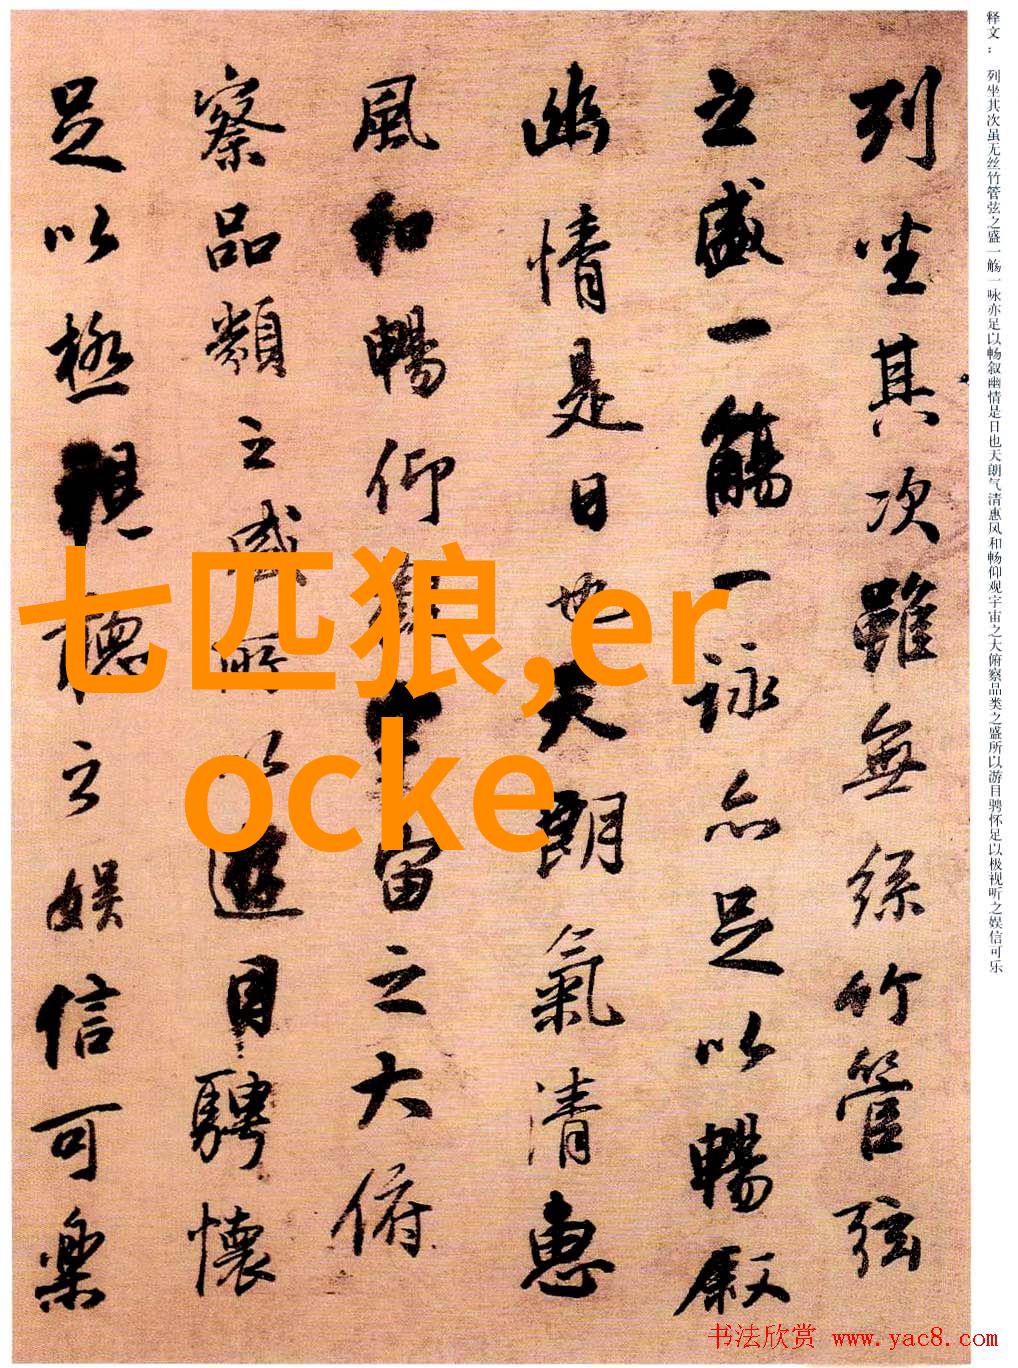 释文： 列坐其次虽无丝竹管弦之盛一觞一咏亦足以畅叙幽情是日也天朗气清惠风和畅仰观宇宙之大俯察品类之盛所以游目骋怀足以极视听之娱信可乐
列坐其次雖無絲竹管弦
之盛一觴一詠亦足以暢叙
幽情是日也天朗氣清惠
風和暢仰觀宇宙之大俯
察品類之盛所以遊目騁懷
足以極視聽之娛信可樂
七匹狼,er
ocke
书法欣赏 www.yac8.com